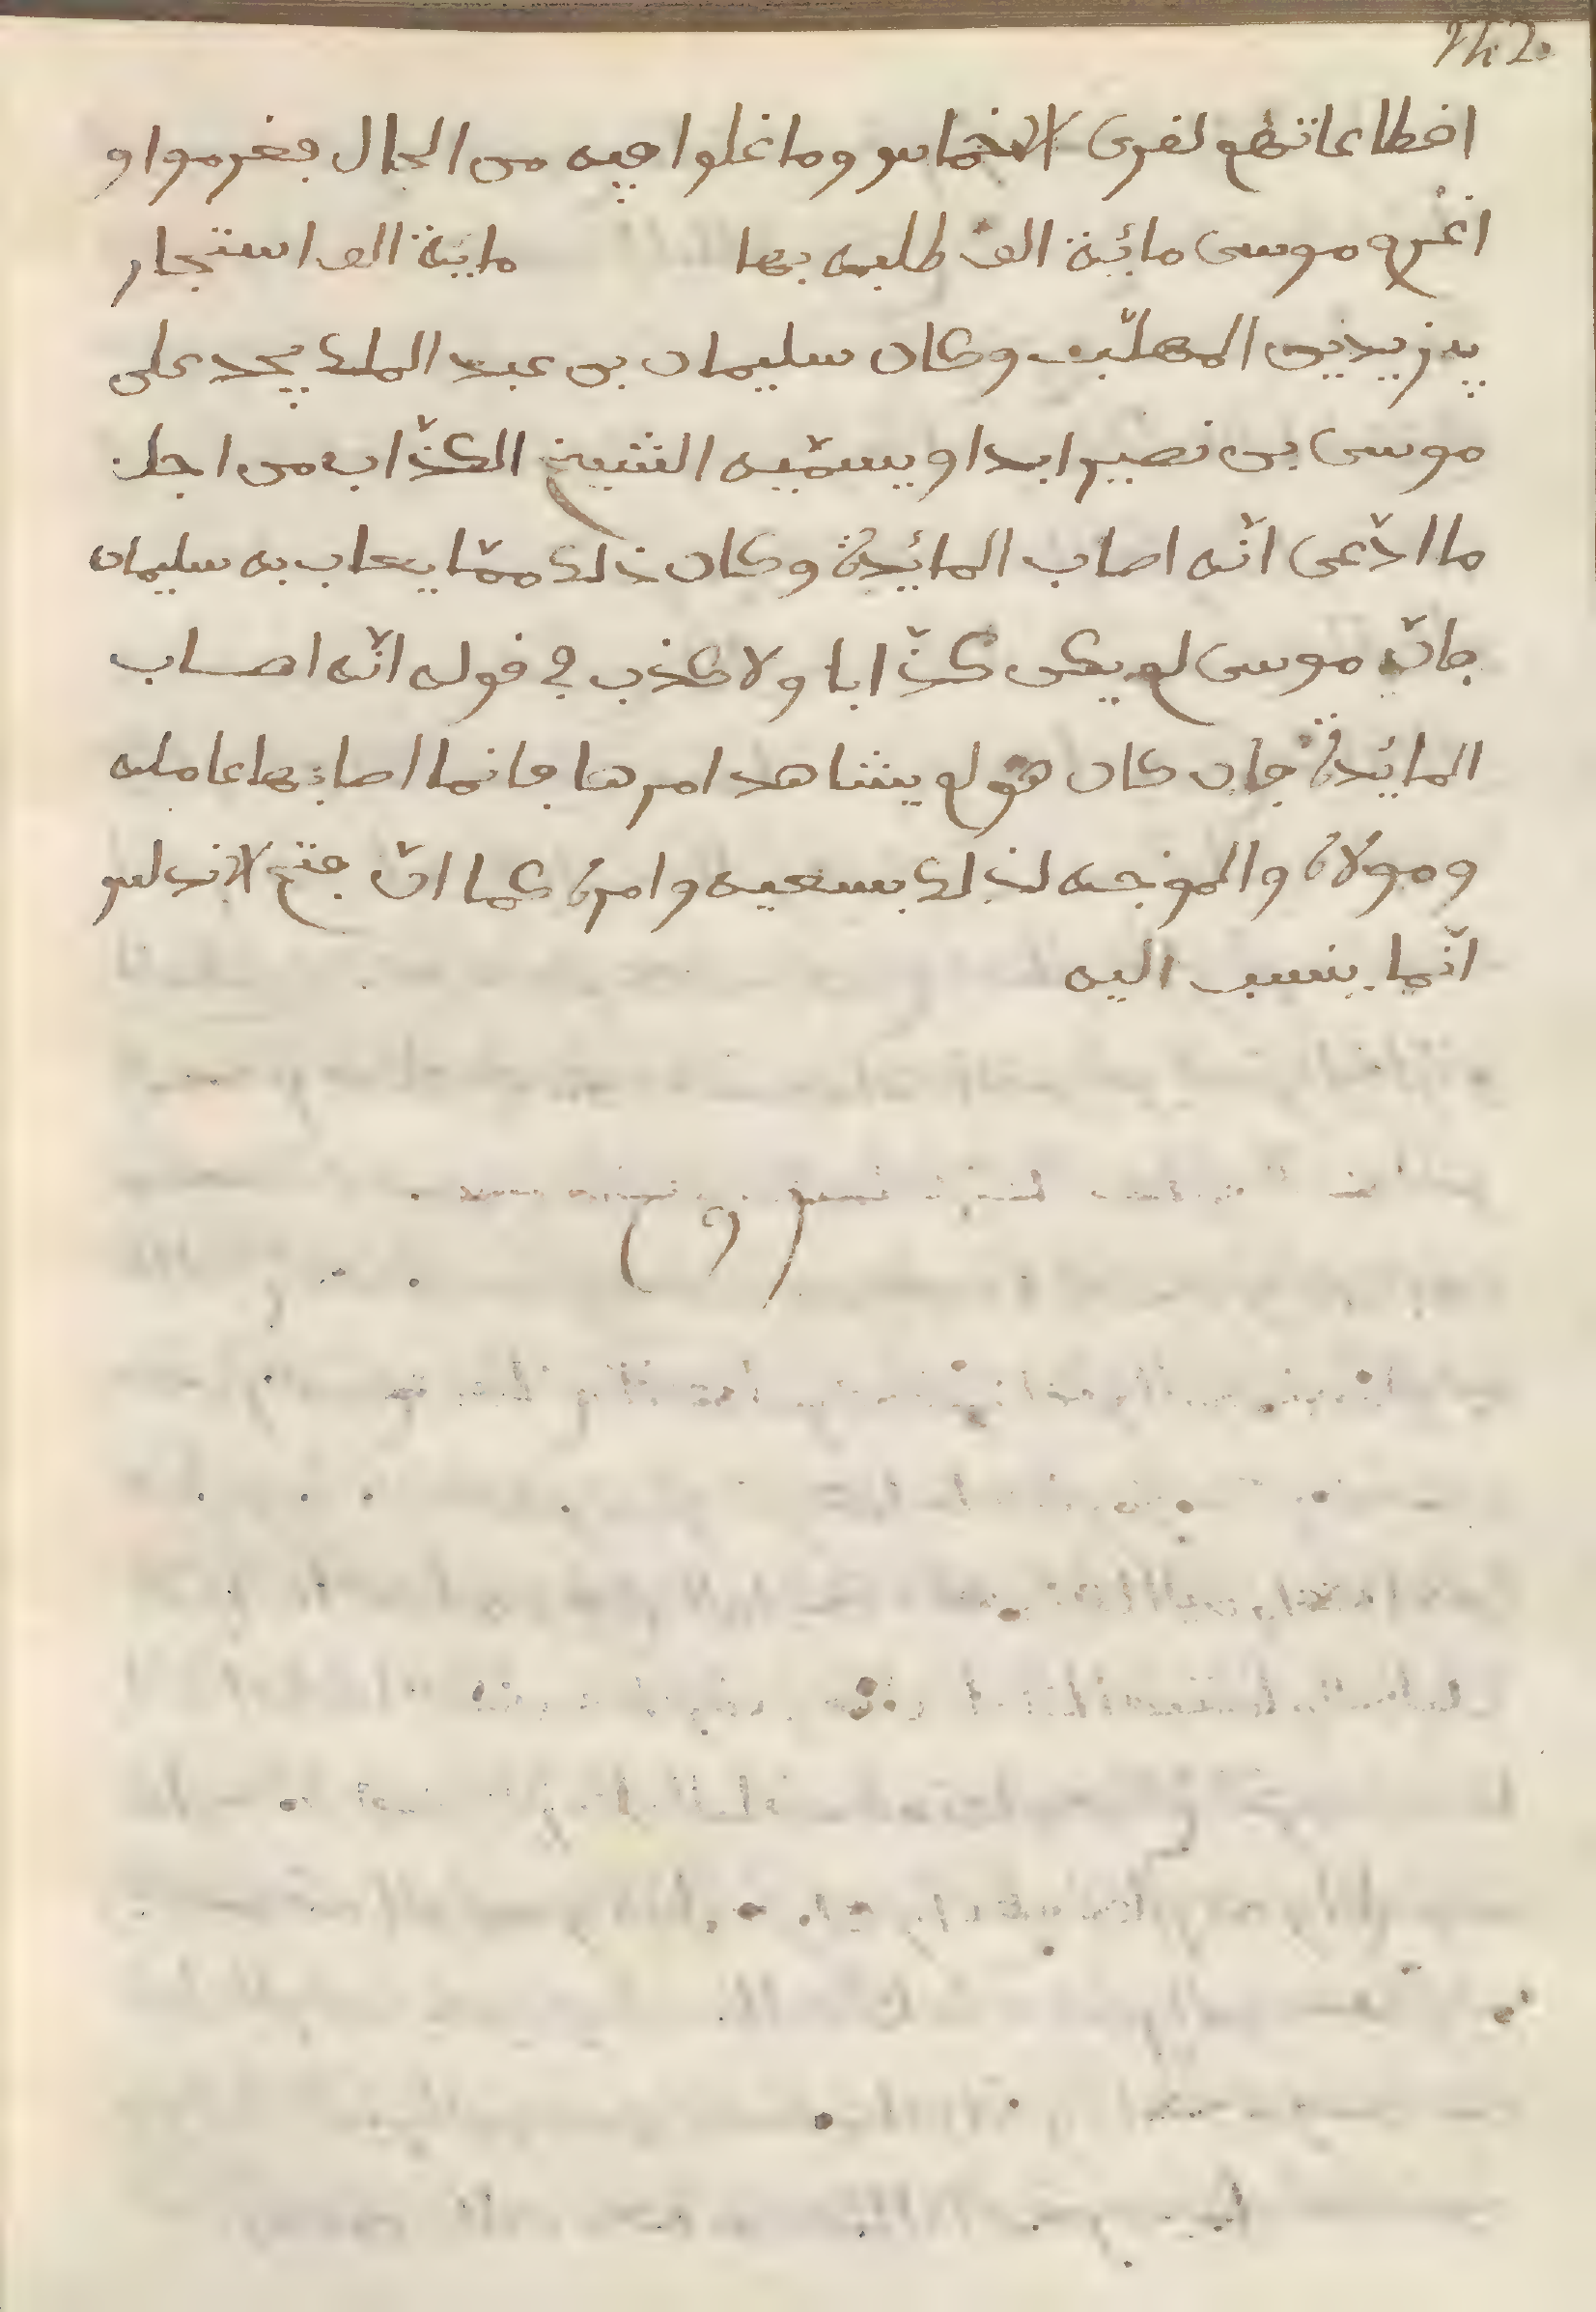 142.
اقطاعاتهم لقرى الاخماس وما غلوا فيه من المال فغرموا و
اغرم موسى مائة الف طلبه بها مايئة الف استجار
بيزيد بن المهلّب وكان سليمان بن عبد الملك يجد على
موسى بن نصير ابدا ويسمّيه الشيخ الكذّاب من اجل
ما ادّعى انّه اصاب المائدة وكان ذلك ممّا يعاب به سليمان
فانّ موسى لم يكن كذّابا ولا كذب في قوله انّه اصاب
المائدة فان كان هو لم يشاهد امرها فانما اصابها عامله
ومولاه والموجه لذلك بسعيه وامره كما انّ فتح الاندلس
انّما ينسب اليه